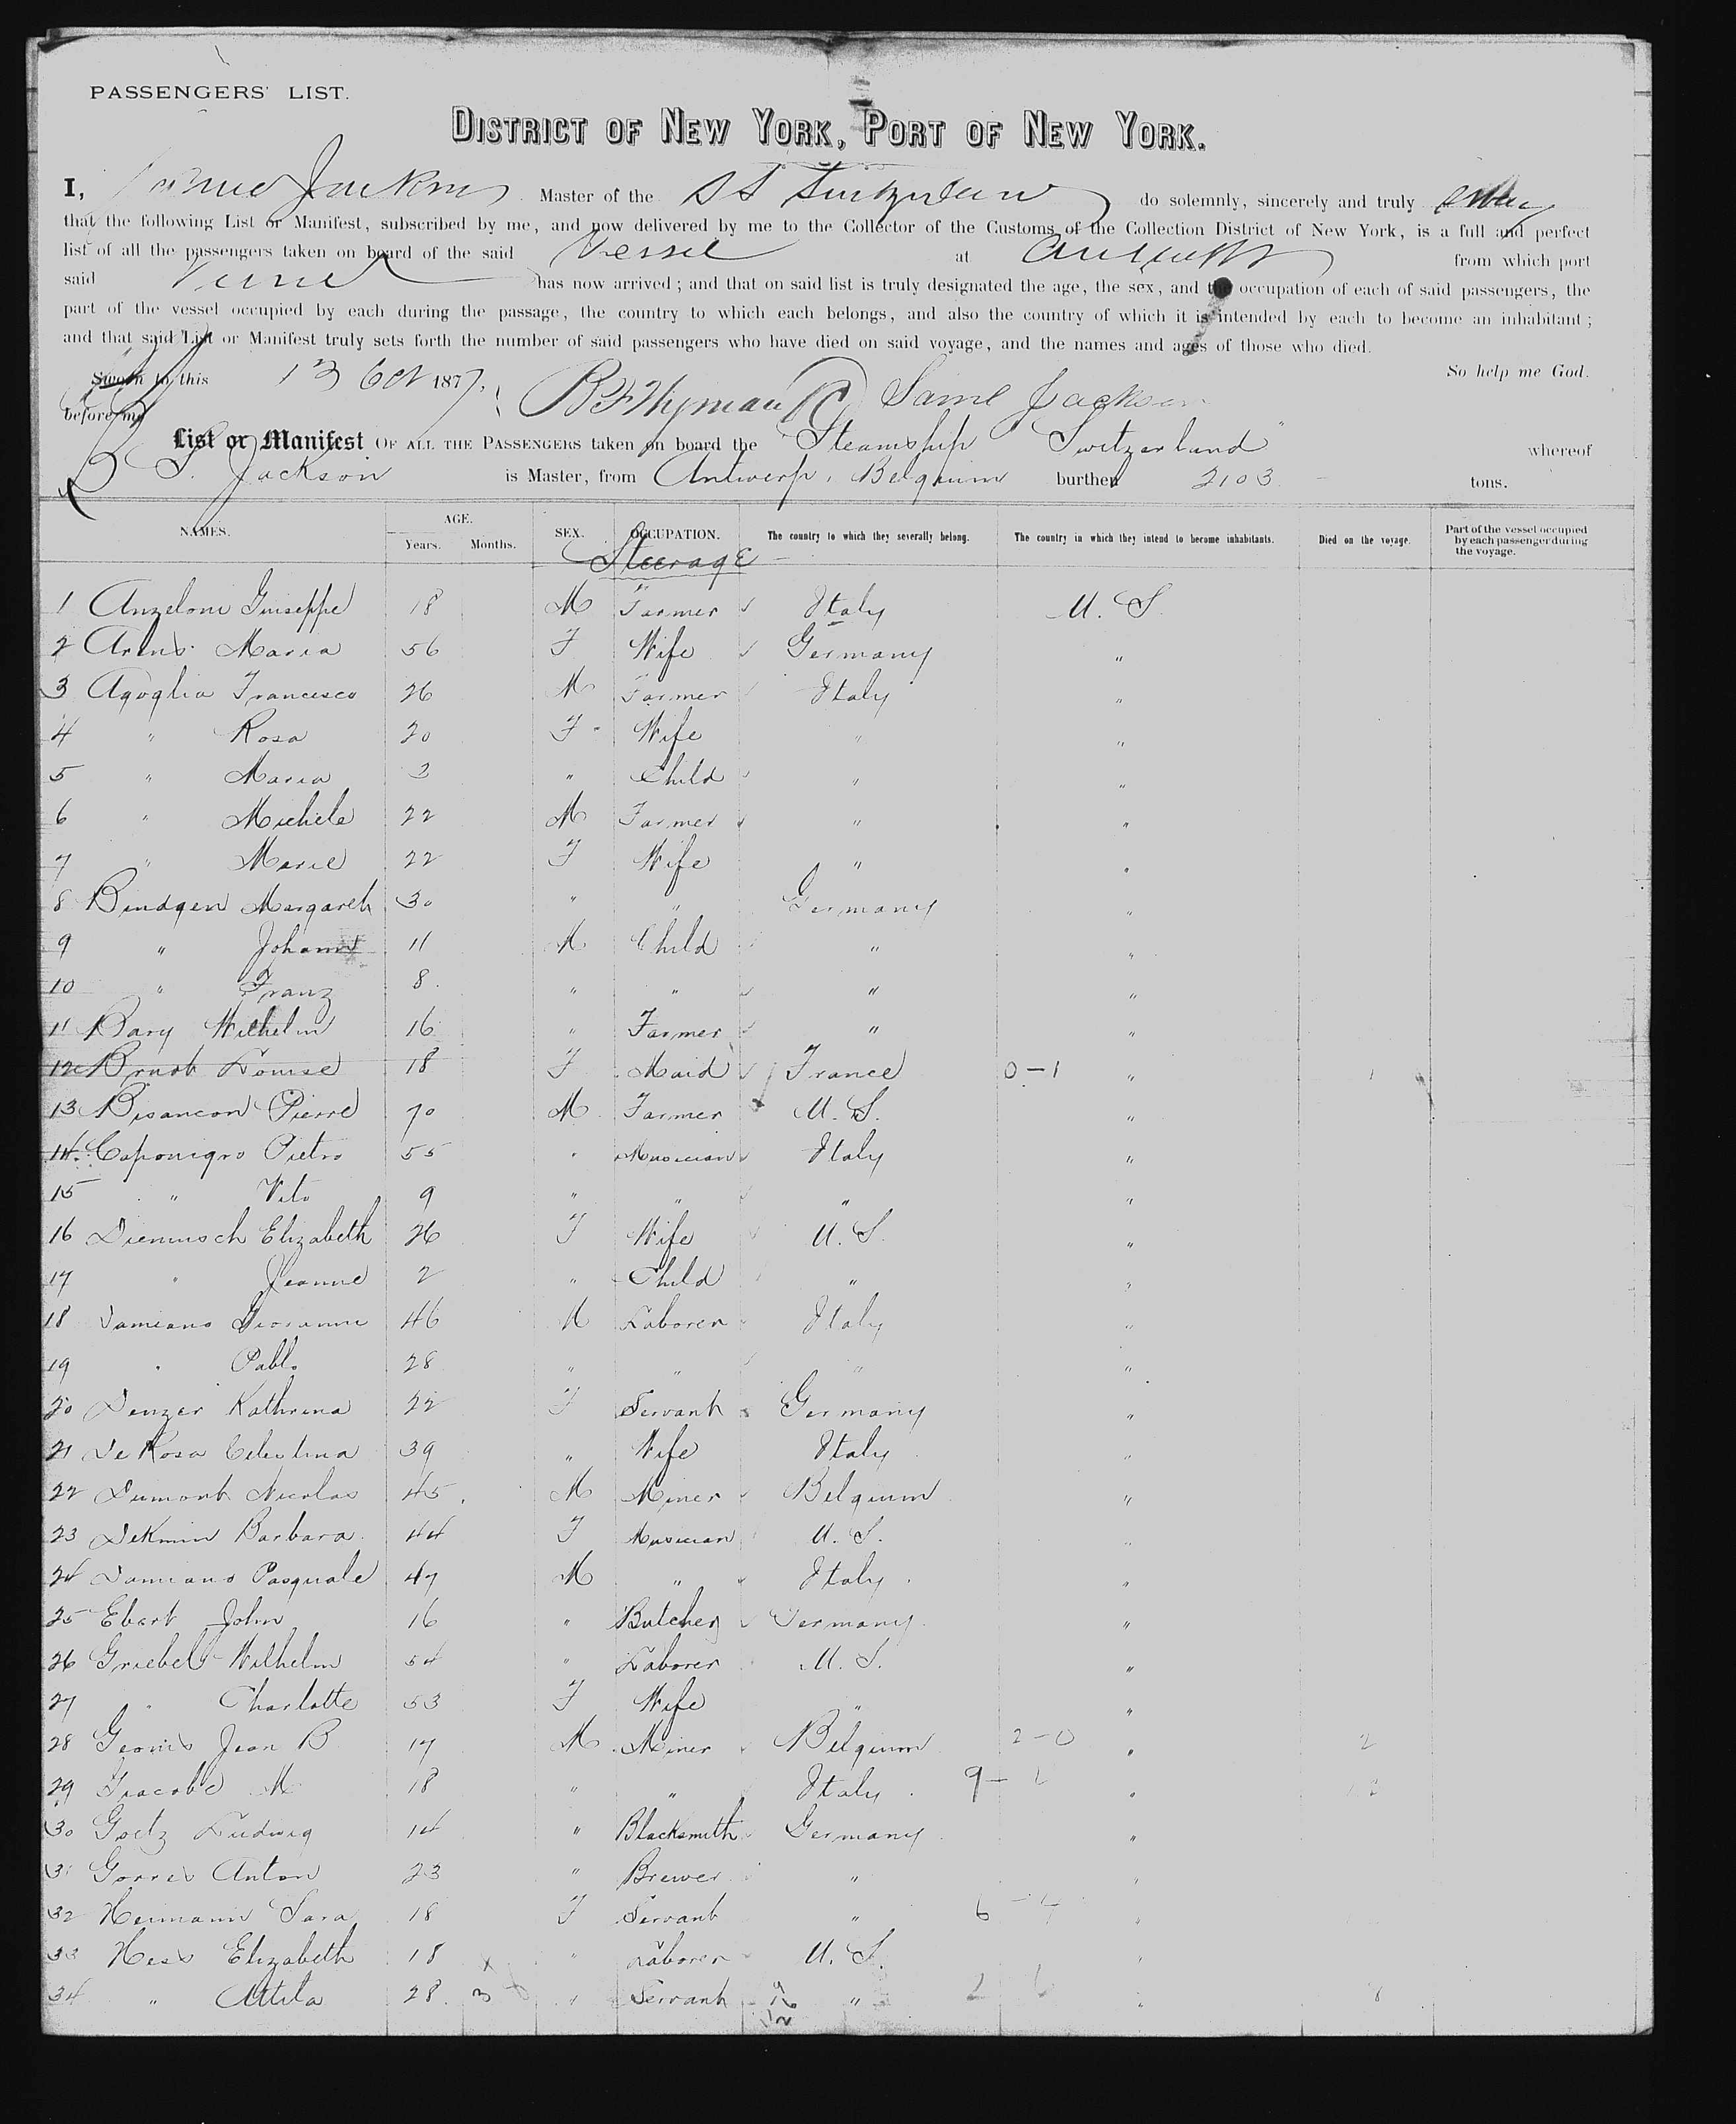 PASSENGERS' LIST.
DISTRICT OF NEW YORK, PORT OF NEW YORK.
I, Jackson Master of the SS Switzerland do solemnly, sincerely and truly swear
that the following List or Manifest, subscribed by me, and now delivered by me to the Collector of the Customs of the Collection District of New York, is a full and perfect
list of all the passengers taken on board of the said Vessel at Antwerp from which port
said Vessel has now arrived; and that on said list is truly designated the age, the sex, and the occupation of each of said passengers, the
part of the vessel occupied by each during the passage, the country to which each belongs, and also the country of which it is intended by each to become an inhabitant;
and that said List or Manifest truly sets forth the number of said passengers who have died on said voyage, and the names and ages of those who died.
Sworn to this 13 Oct 1877. So help me God.
before me B F Wyman Saml Jackson
List or Manifest OF ALL THE PASSENGERS taken on board the "Steamship Switzerland" whereof
S. Jackson is Master, from Antwerp, Belgium burthen 2103 tons.
NAMES. AGE. Years. Months. SEX. OCCUPATION. The country to which they severally belong. The country in which they intend to become inhabitants. Died on the voyage. Part of the vessel occupied by each passenger during the voyage.
Steerage
1 Anzelone Guiseppe 18 M Farmer Italy U. S.
2 Arens Maria 56 F Wife Germany "
3 Agoglia Francesco 26 M Farmer Italy "
4 " Rosa 20 F Wife " "
5 " Maria 3 " Child " "
6 " Michele 22 M Farmer " "
7 " Marie 22 F Wife " "
8 Bindgen Margareth 30 " " Germany "
9 " Johann 11 M Child " "
10 " Franz 8 " " " "
11 Bary Wilhelm 16 " Farmer " "
12 Louise 18 F Maid France 0-1 " 1
13 Bisancon Pierre 70 M Farmer U. S. "
14 Caponigro Pietro 55 " Musician Italy "
15 " Vito 9 " " " "
16 Diemusch Elizabeth 26 F Wife U. S. "
17 " Jeanne 2 " Child " "
18 Damiano Giovanni 46 M Laborer Italy "
19 " Pablo 28 " " " "
20 Denzer Kathrina 22 F Servant Germany "
21 De Rosa Celestina 39 " Wife Italy "
22 Dumont Nicolas 45 M Miner Belgium "
23 Barbara 44 F Musician U. S. "
24 Damiano Pasquale 47 M " Italy "
25 Ebert John 16 " Butcher Germany "
26 Griebel Wilhelm 54 " Laborer U. S. "
27 " Charlotte 53 F Wife " "
28 Geonis Jean B 17 M Miner Belgium 2-0 " 2
29 Giacobe M 18 " " Italy 9- "
30 Goetz Ludwig 14 " Blacksmith Germany "
31 Gorres Anton 23 " Brewer " "
32 Hermann Sara 18 F Servant " 6-4 "
33 Hess Elizabeth 18 " Laborer U. S. "
34 " Attila 28 " Servant " "